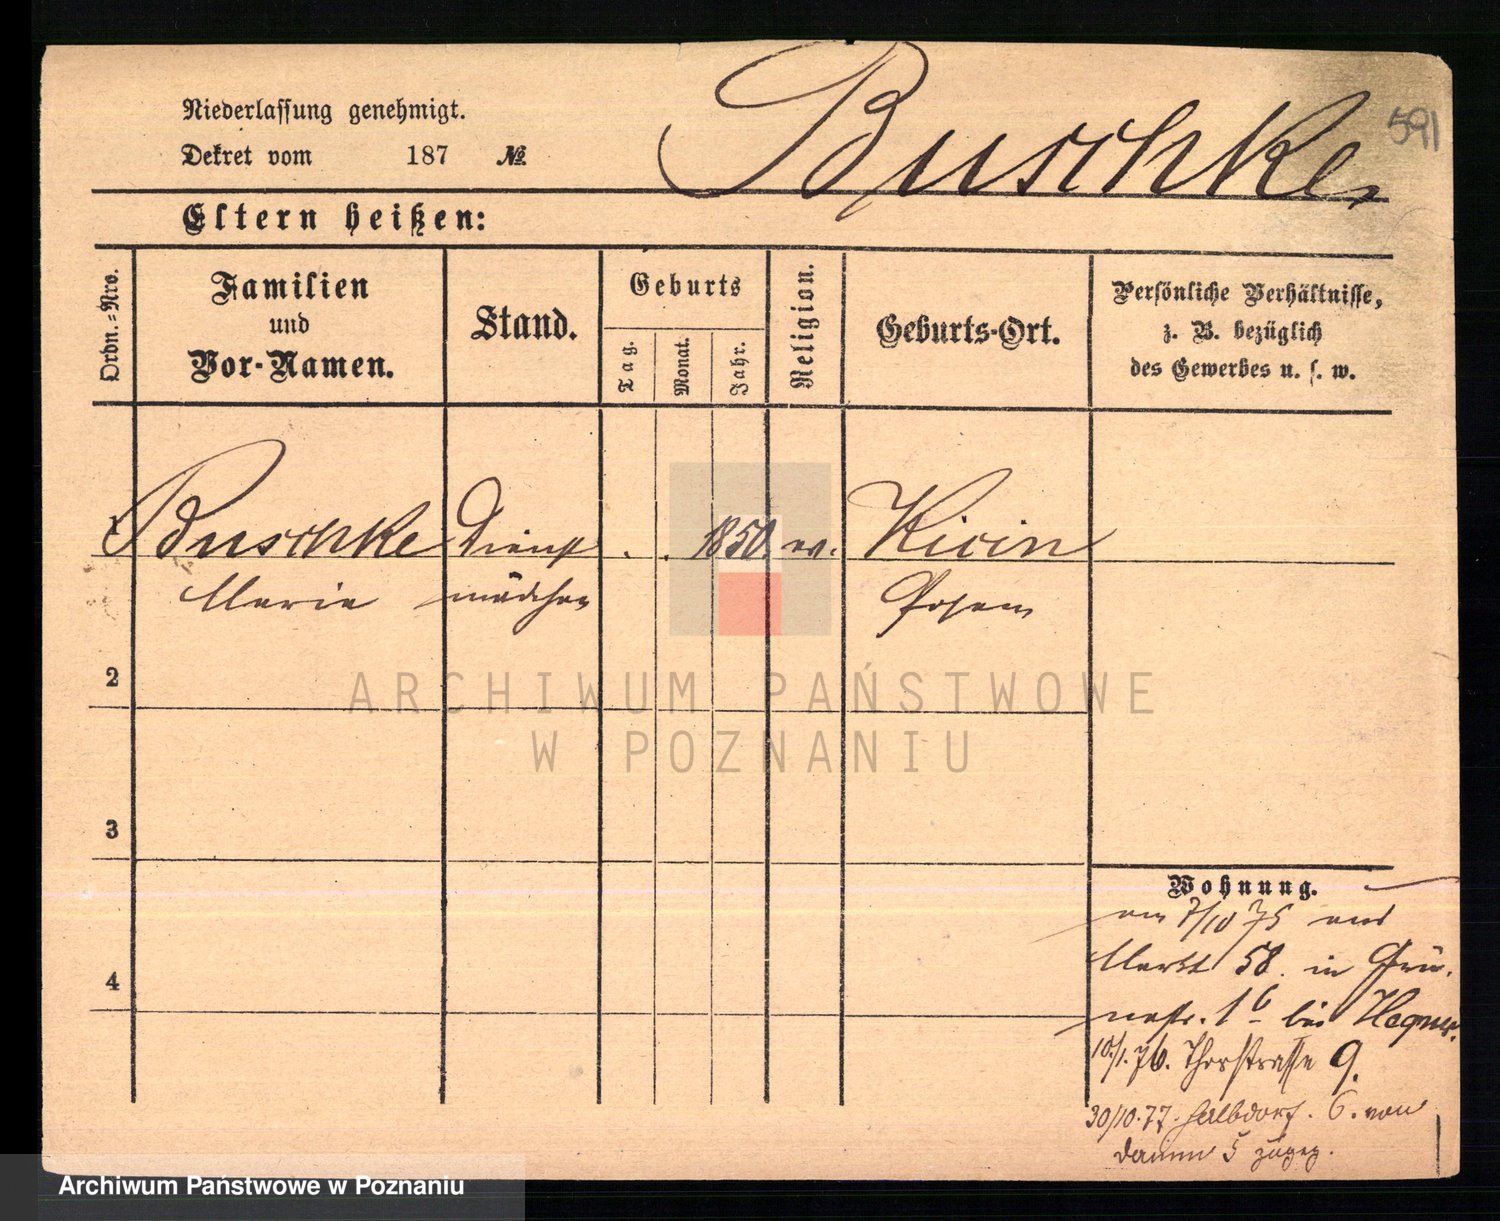 Niederlassung genehmigt.
Dekret vom 187 №
Buschke
591
Eltern heißen:
Ordn.-Nro.
Familien
und
Vor-Namen.
Stand.
Geburts
Tag.
Monat.
Jahr.
Religion.
Geburts-Ort.
Persönliche Verhältnisse,
z. B. bezüglich
des Gewerbes u. s. w.
1 Buschke Dienst . . 1850. ev. Kicin
Marie mädchen Posen
2
ARCHIWUM PAŃSTWOWE
W POZNANIU
3
4
Wohnung.
am 7/10 75 aus
Markt 58. in Grü-
nestr. 1 b bei Hegner.
10/1.76. Thorstrasse 9.
30/10.77. Halbdorf. 6. von
Damm 5 zugez.
Archiwum Państwowe w Poznaniu